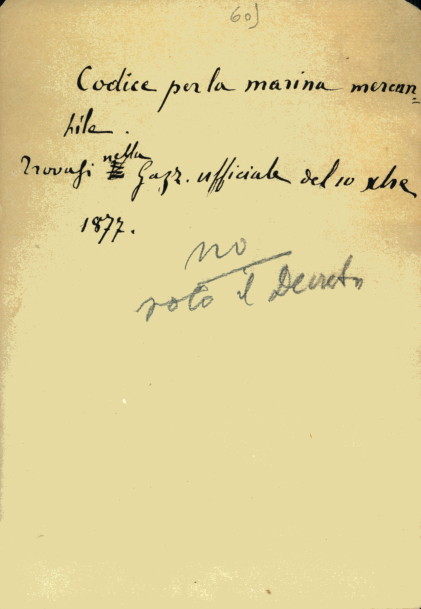 60)
Codice per la marina mercan=
tile.
nella
Trovasi Gazz. ufficiale del 10 xbre
1877.
no
solo il Decreto